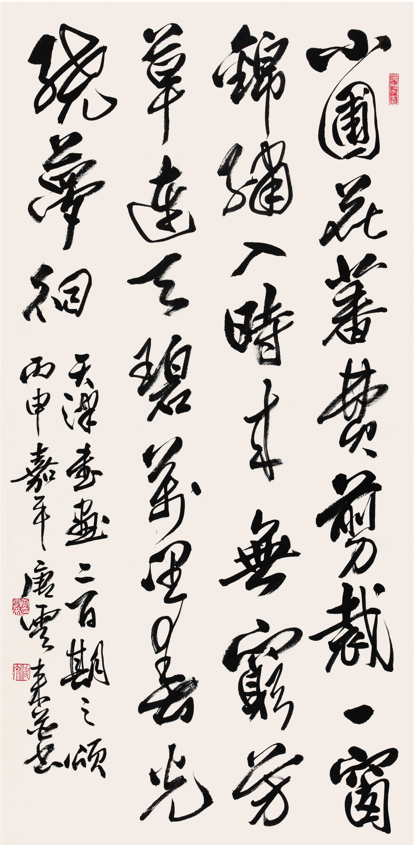 小圃花蕃費剪裁一窗
錦繡入時来無窮芳
草連天碧萬里春光
繞夢徊
天津書畫二百期之頌
丙申嘉平唐雲来並書